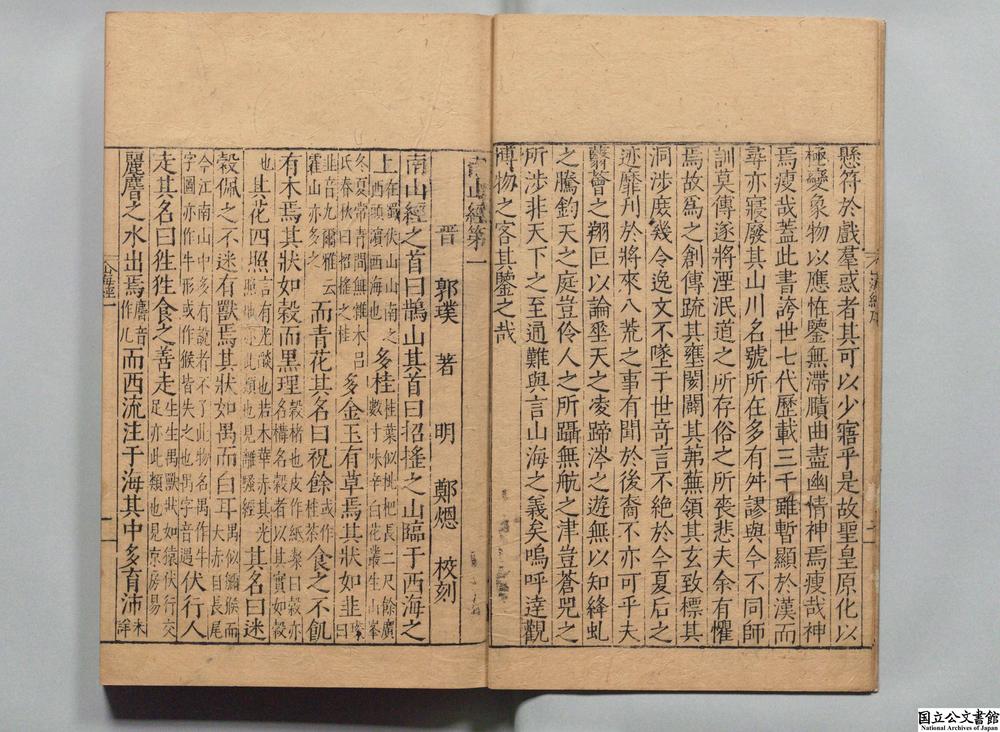 山海經序
懸符於戲羣惑者其可以少寤乎是故聖皇原化以
極變象物以應恠鑒無滯賾曲盡幽情神焉廋哉神
焉廋哉蓋此書誇世七代歷載三千雖暫顯於漢而
尋亦寢廢其山川名號所在多有舛謬與今不同師
訓莫傳遂將湮泯道之所存俗之所喪悲夫余有懼
焉故爲之創傳疏其壅閡闢其茀蕪領其玄致標其
洞涉庶幾令逸文不墜于世奇言不絕於今夏后之
迹靡刊於將來八荒之事有聞於後裔不亦可乎夫
蘙薈之翔叵以論垂天之凌蹄涔之遊無以知絳虬
之騰鈞天之庭豈伶人之所躡無航之津豈蒼兕之
所涉非天下之至通難與言山海之義矣嗚呼達觀
博物之客其鑒之哉
南山經第一
晉 郭璞 著 明 鄭煾 校刻
南山經之首曰鵲山其首曰招搖之山臨于西海之
上在蜀伏山山南之西頭濱西海也多桂桂葉似枇杷長二尺餘廣數寸味辛白花叢生山峯
冬夏常青間無雜木呂氏春秋曰招搖之桂多金玉有草焉其狀如韭璨曰
韭音九爾雅云霍山亦多之而青花其名曰祝餘或作桂荼食之不飢
有木焉其狀如榖而黑理榖楮也皮作紙璨曰榖亦名構名榖者以其實如穀
也其花四照言有光燄也若木華赤其光照地亦此類也見離騷經其名曰迷
榖佩之不迷有獸焉其狀如禺而白耳禺似獼猴而大赤目長尾
今江南山中多有說者不了此物名禺作牛字圖亦作牛形或作猴皆失之也禺字音遇伏行人
走其名曰狌狌食之善走生生禺獸狀如猿伏行交足亦此類也見京房易
麗𪊨之水出焉𪊨音作几而西流注于海其中多育沛未詳
山海經
国立公文書館
National Archives of Japan